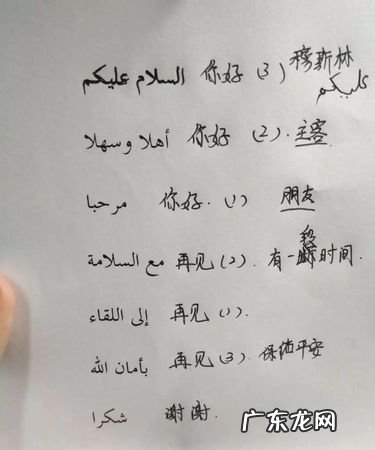 السلام عليكم 你好 (3) 穆斯林
عليكم
أهلا وسهلا 你好 (2). 主客
مرحبا 你好. (1) 朋友
مع السلامة 再见 (2). 有一段时间.
إلى اللقاء 再见 (1).
بأمان الله 再见 (3). 保佑平安
شكرا 谢谢.
广东龙网